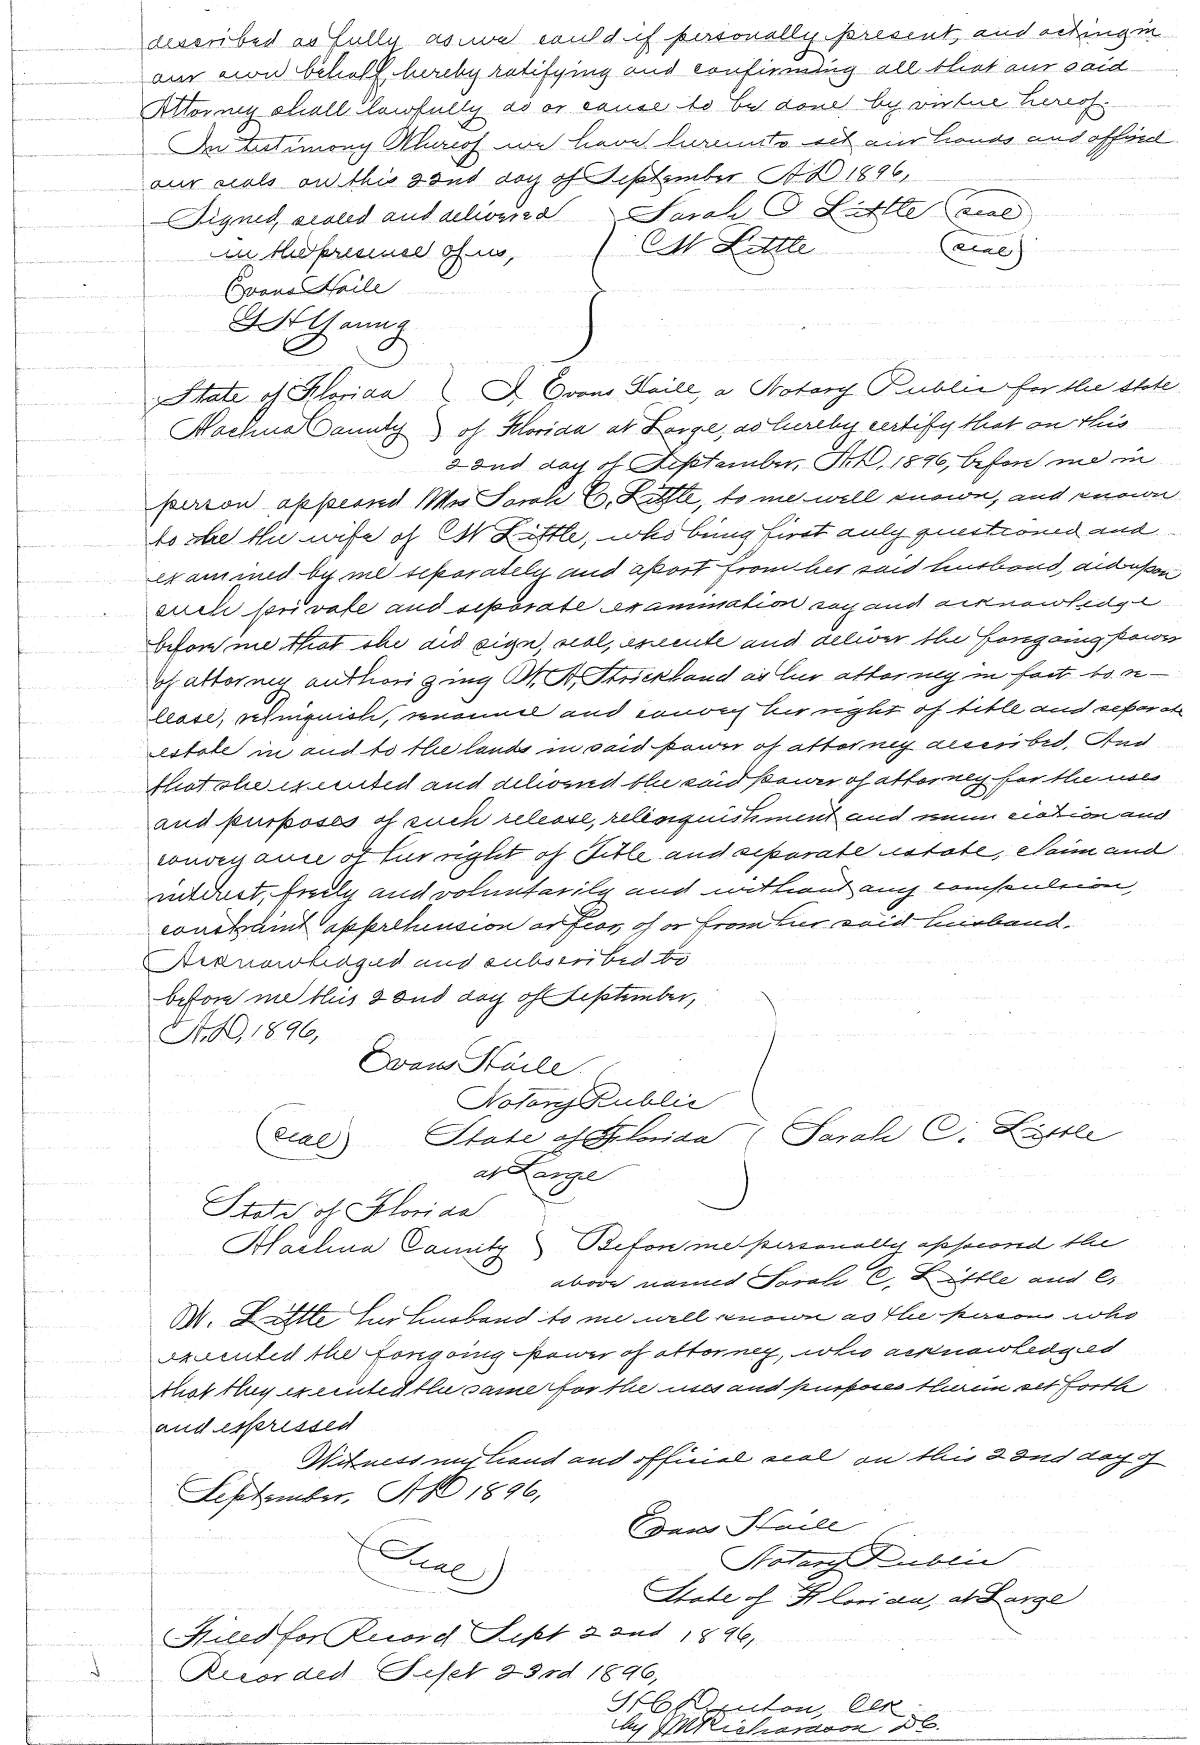 described as fully as we could if personally present, and acting in
our own behalf, hereby ratifying and confirming all that our said
Attorney shall lawfully do or cause to be done by virtue hereof.
In testimony Whereof we have hereunto set our hands and affixed
our seals on this 22nd day of September AD 1896,
Signed, sealed and delivered Sarah C Little (seal)
in the presence of us, C W Little (seal)
Evans Haile
State of Florida I Evans Haile, a Notary Public for the state
Alachua County of Florida at Large, do hereby certify that on this
22nd day of September, A.D. 1896, before me in
person appeared Mrs Sarah C. Little, to me well known, and known
to be the wife of C W Little, who being first duly questioned and
examined by me separately and apart from her said husband, did upon
such private and separate examination say and acknowledge
before me that she did sign, seal, execute and deliver the foregoing power
of attorney authorizing W. A. Strickland as her attorney in fact to re-
lease, relinquish, renounce and convey her right of title and separate
estate in and to the lands in said power of attorney described. And
that she executed and delivered the said power of attorney for the uses
and purposes of such release, relinquishment and renunciation and
conveyance of her right of Title and separate estate, claim and
interest, freely and voluntarily and without any compulsion,
constraint apprehension or fear, of or from her said husband.
Acknowledged and subscribed to
before me this 22nd day of September,
A.D, 1896,
Evans Haile
Notary Public
(seal) State of Florida Sarah C. Little
at Large
State of Florida
Alachua County Before me personally appeared the
above named Sarah C, Little and C,
W. Little her husband to me well known as the persons who
executed the foregoing power of attorney, who acknowledged
that they executed the same for the uses and purposes therein set forth
and expressed
Witness my hand and official seal on this 22nd day of
September, AD 1896,
Evans Haile
(Seal) Notary Public
State of Florida, at Large
Filed for Record Sept 22nd 1896,
Recorded Sept 23rd 1896,
Denton, Clk
by Richardson DC.